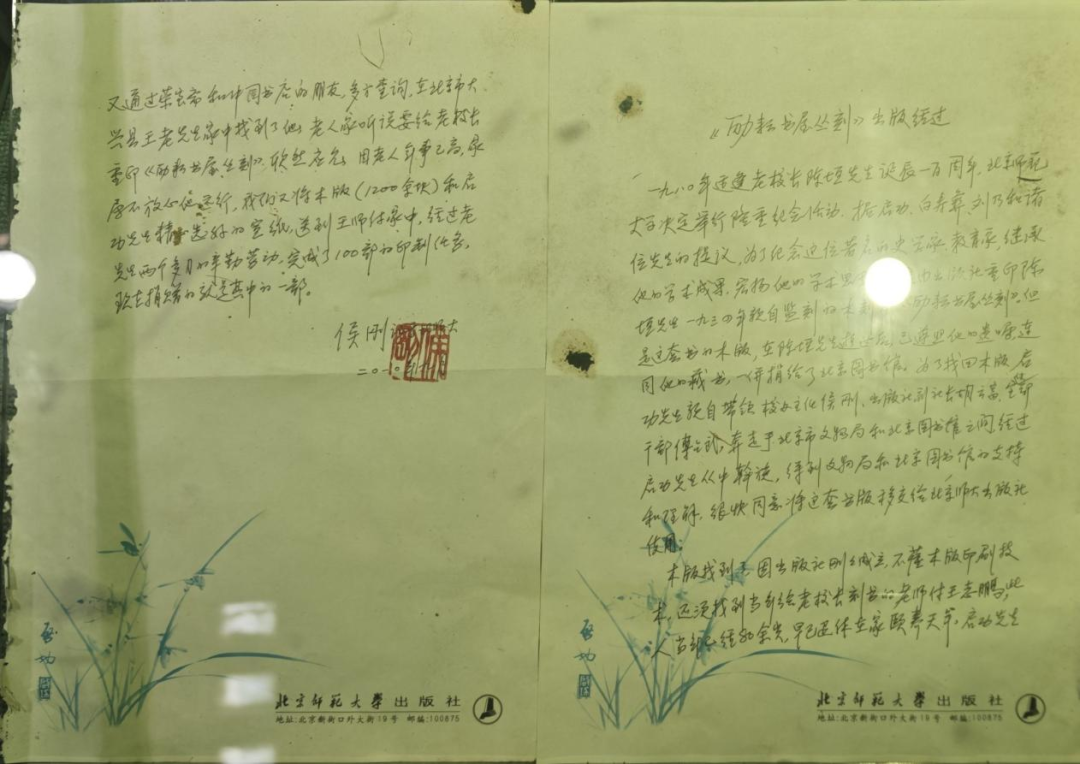 《励耘书屋丛刻》出版经过
一九八〇年适逢老校长陈垣先生诞辰一百周年，北京师范
大学决定举行隆重纪念活动，据启功、白寿彝、刘乃和诸
位先生的提议，为了纪念这位著名的史学家、教育家，继承
他的学术成果，宏扬他的学术思 由出版社重印陈
垣先生一九三四年亲自监刻的木 励耘书屋丛刻》。但
是这套书的木版，在陈垣先生逝世后，已遵照他的遗嘱，连
同他的藏书，一併捐给了北京图书馆。为了找回木版，启
功先生亲自带领校办主任侯刚、出版社副社长胡云富、
干部傅 武，奔走于北京市文物局和北京图书馆之间，经过
启功先生从中斡旋，得到文物局和北京图书馆的支持
和理解，很快同意将这套书版移交给北京师大出版社
使用。
木版找到了，因出版社刚成立，不懂木版印刷技
术，还须找到当年给老校长刻书的老师付王志鹏，此
人当年已经80余岁，早已退休在家颐养天年，启功先生
又通过荣宝斋和中国书店的朋友，多方查询，在北京市大
兴县王老先生家中找到了他，老人家听说要给老校长
重印《励耘书屋丛刻》，欣然应允，因老人年事已高，
不放心他 行，我们又将木版（1200余块）和启
功先生精心选好的宣纸，送到王师付家中，经过老
先生两个多月的辛勤劳动，完成了100部的印制任务。
现在捐赠的就是其中的一部。
侯刚 大
二〇一〇
启功
北京师范大学出版社
地址:北京新街口外大街19号 邮编:100875
启功
北京师范大学出版社
地址:北京新街口外大街19号 邮编:100875